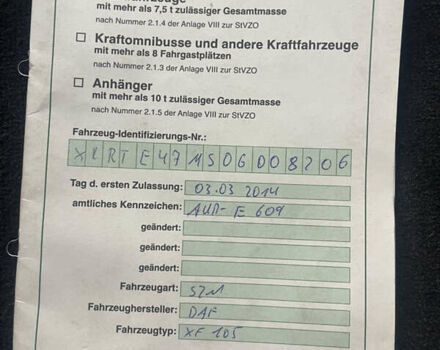 mit mehr als 7,5 t zulässiger Gesamtmasse
nach Nummer 2.1.4 der Anlage VIII zur StVZO
☐ Kraftomnibusse und andere Kraftfahrzeuge
mit mehr als 8 Fahrgastplätzen
nach Nummer 2.1.3 der Anlage VIII zur StVZO
☐ Anhänger
mit mehr als 10 t zulässiger Gesamtmasse
nach Nummer 2.1.5 der Anlage VIII zur StVZO
Fahrzeug-Identifizierungs-Nr.:
XLRTE47MS0G008206
Tag d. ersten Zulassung: 03.03 2014
amtliches Kennzeichen: AUR-E 609
geändert:
geändert:
geändert:
Fahrzeugart: SZM
Fahrzeughersteller: DAF
Fahrzeugtyp: XF 105